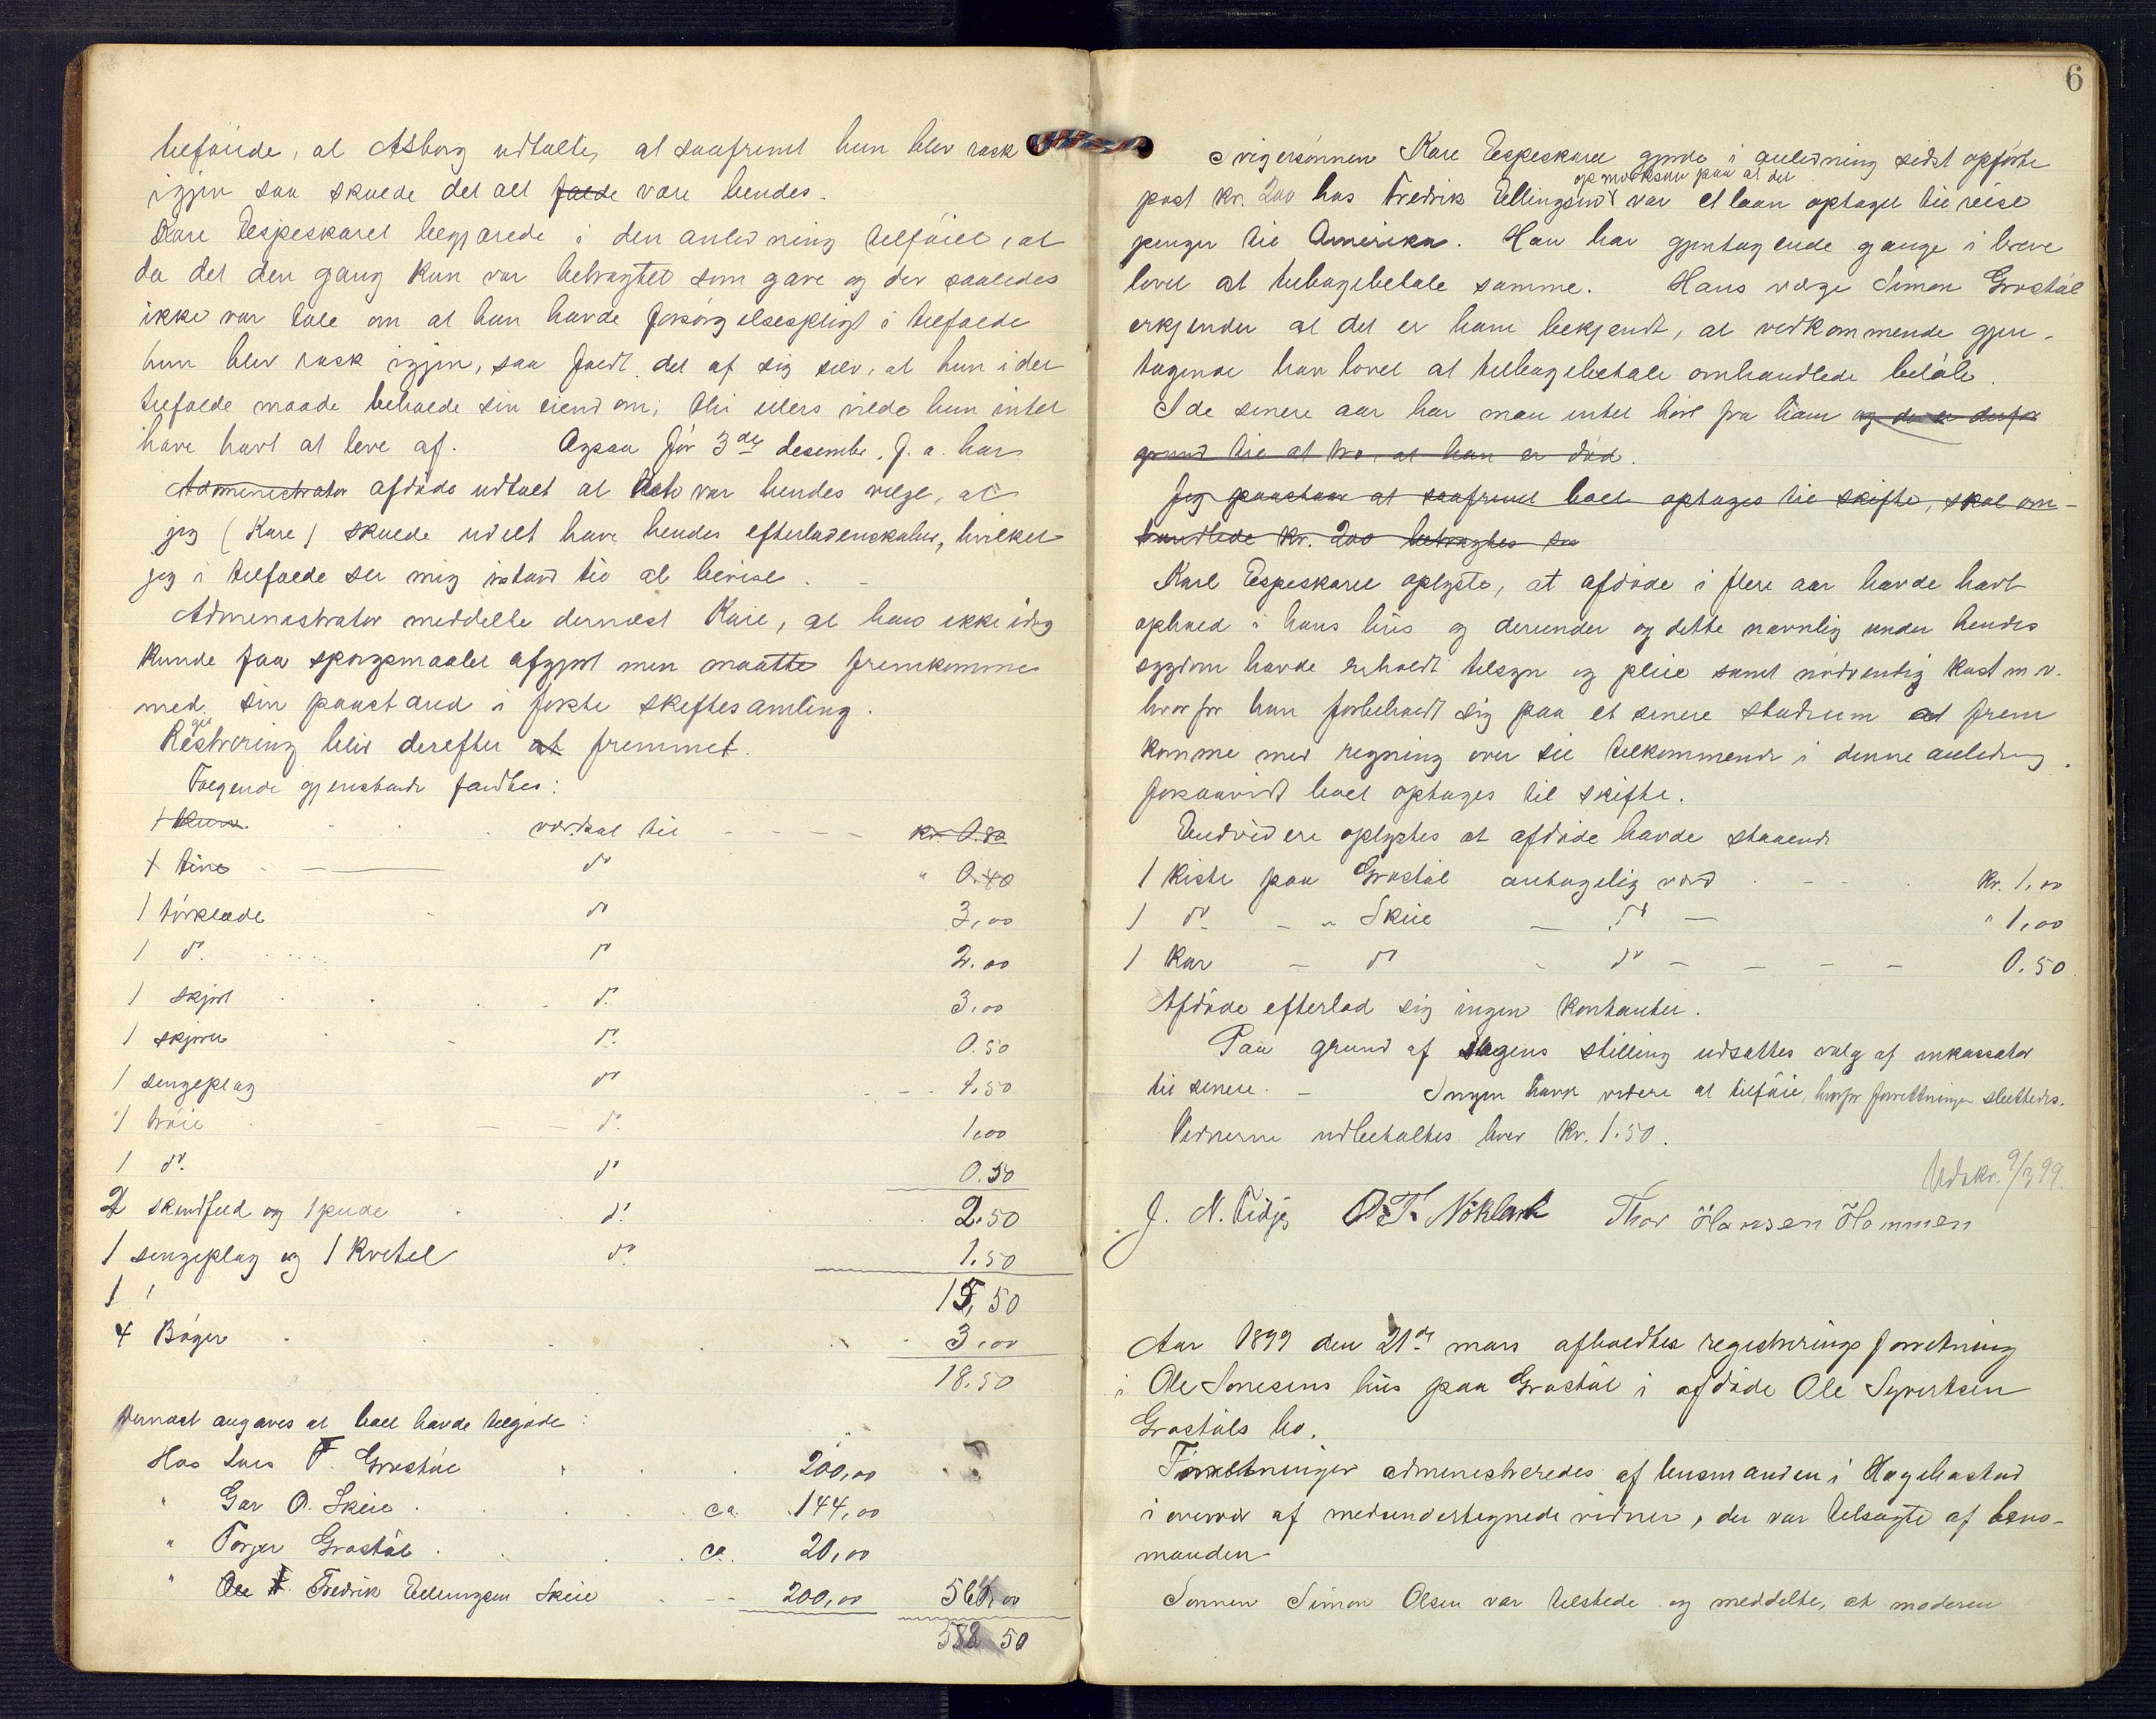 tilføiede, at Asborg udtalte, at saafremt hun blev rask
igjen saa skulde det alt falde være hendes.
Kare Espeskaret begjærede i den anledning tilføiet, at
da det den gang kun var betragtet som gave og der saaledes
ikke var tale om at han havde forsørgelsespligt i tilfælde
hun blev rask igjen, saa faldt det af sig selv, at hun i det
tilfælde maatte beholde sin eiendom; thi ellers vilde hun intet
have havt at leve af. Ogsaa før 3die desembr. f. a. har
Administrator afdøde udtalt at det var hendes vilge, at
jeg (Kare) skulde udelt have hendes efterladenskaber, hvilket
jeg i tilfælde ser mig istand til at bevise. -
Administrator meddelte dernæst Kare, at han ikke idag
kunde faa spørgsmaalet afgjort men maatte fremkomme
med sin paastand i første skiftesamling.
Registrering blev derefter at fremmet.
Følgende gjenstande fandtes:
1 værdsat til kr. 0.80
1 tine do " 0.40
1 tørklæde do 3,00
1 do. do 2.00
1 skjørt do. 3,00
1 skjorte do. 0.50
1 sengeplag do 1.50
1 trøie do. 1,00
1 do. do 0.50
2 skindfeld og 1 pude do. 2.50
1 sengeplag og 1 kvitel do. 1.50
1 15,50
4 Bøger 3,00
18.50
Dernæst angaves at boet havde tilgode:
Hos Lars T. Grostøl 200,00
" Gar O. Skeie ca. 144,00
" Torjer Grostøl ca. 20,00
" Ole Fredrik Ellingsen Skeie 200,00 564,00
582 50
6
Svigersønnen Kare Espeskaret gjorde i anledning sidst opførte
opmerksom paa at det
post kr. 200 hos Fredrik Ellingsen var et laan optaget til reise
penger til Amerika. Han har gjentagende gange i breve
lovet at tilbagebetale samme. Hans værge Simon Grostøl
erkjender at det er ham bekjendt, at vedkommende gjen-
tagende har lovet at tilbagebetale omhandlede beløb.
I de senere aar har man intet hørt fra ham og der er derfor
grund til at tro, at han er død.
Jeg paastaar at saafremt boet optages til skifte, skal om-
handlede kr. 200 betragtes som
Karl Espeskaret oplyste, at afdøde i flere aar havde havt
ophold i hans hus og derunder og dette navnlig under hendes
sygdom havde erholdt tilsyn og pleie samt nødvendig kost m. v.
hvorfor han forbeholdt sig paa et senere stadium at frem
komme med regning over sit tilkommende i denne anledning,
forsaavidt boet optages til skifte.
Endvidere oplystes at afdøde havde staaende
1 kiste paa Grostøl antagelig værd kr. 1,00
1 do. - " Skeie - do - " 1,00
1 kar - do - do - - - - 0.50
Afdøde efterlod sig ingen kontanter.
Paa grund af sagens stilling udsattes valg af inkassator
til senere. - Ingen havde videre at tilføie, hvorfor forretningen sluttedes.
Vidnerne udbetaltes hver kr. 1.50.
Udskr. 9/3 99.
J. N. Tidjø O. T. Nøkland Thor Hansen Hommen
Aar 1899 den 21de mars afholdtes registreringsforretning
i Ole Sørensens hus paa Grostøl i afdøde Ole Syvertsen
Grostøls bo.
Forretningen administreredes af lensmanden i Hægebostad
i overvær af medundertegnede vidner, der var tilsagte af lens-
manden
Sønnen Simon Olsen var tilstede og meddelte, at moderen